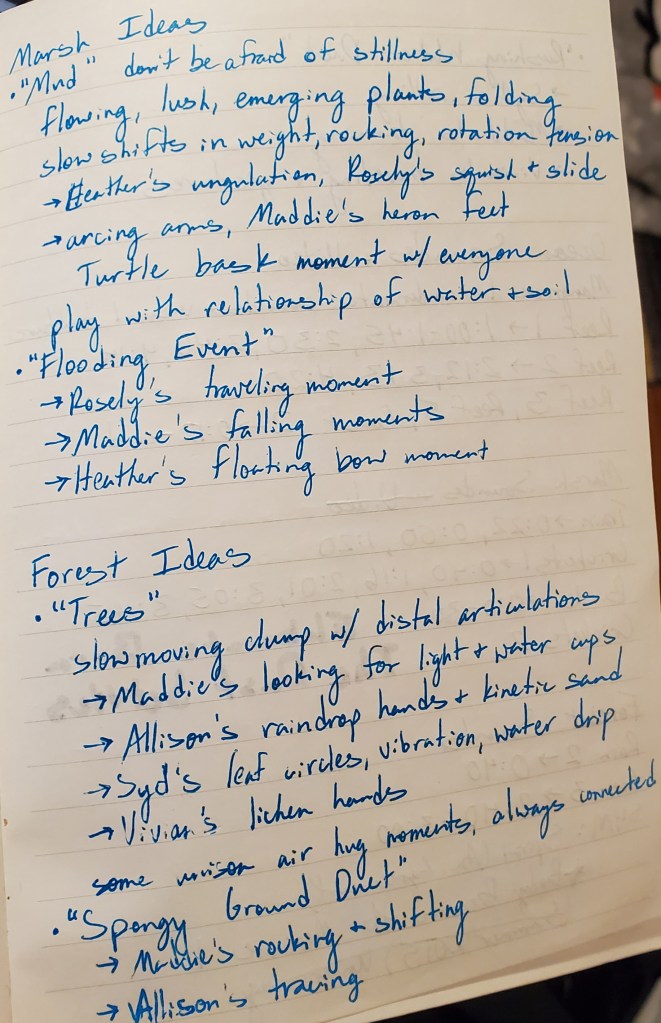 Marsh Ideas
• "Mud" don't be afraid of stillness
flowing, lush, emerging plants, folding
slow shifts in weight, rocking, rotation tension
→ Heather's ungulation, Rosely's squish + slide
→ arcing arms, Maddie's heron feet
Turtle bask moment w/ everyone
play with relationship of water + soil
• "Flooding Event"
→ Rosely's traveling moment
→ Maddie's falling moments
→ Heather's floating bow moment
Forest Ideas
• "Trees"
slow moving clump w/ distal articulations
→ Maddie's looking for light + water cups
→ Allison's raindrop hands + kinetic sand
→ Syd's leaf circles, vibration, water drip
→ Vivian's lichen hands
some unison air hug moments, always connected
• "Spongy Ground Duet"
→ Maddie's rocking + shifting
→ Allison's tracing